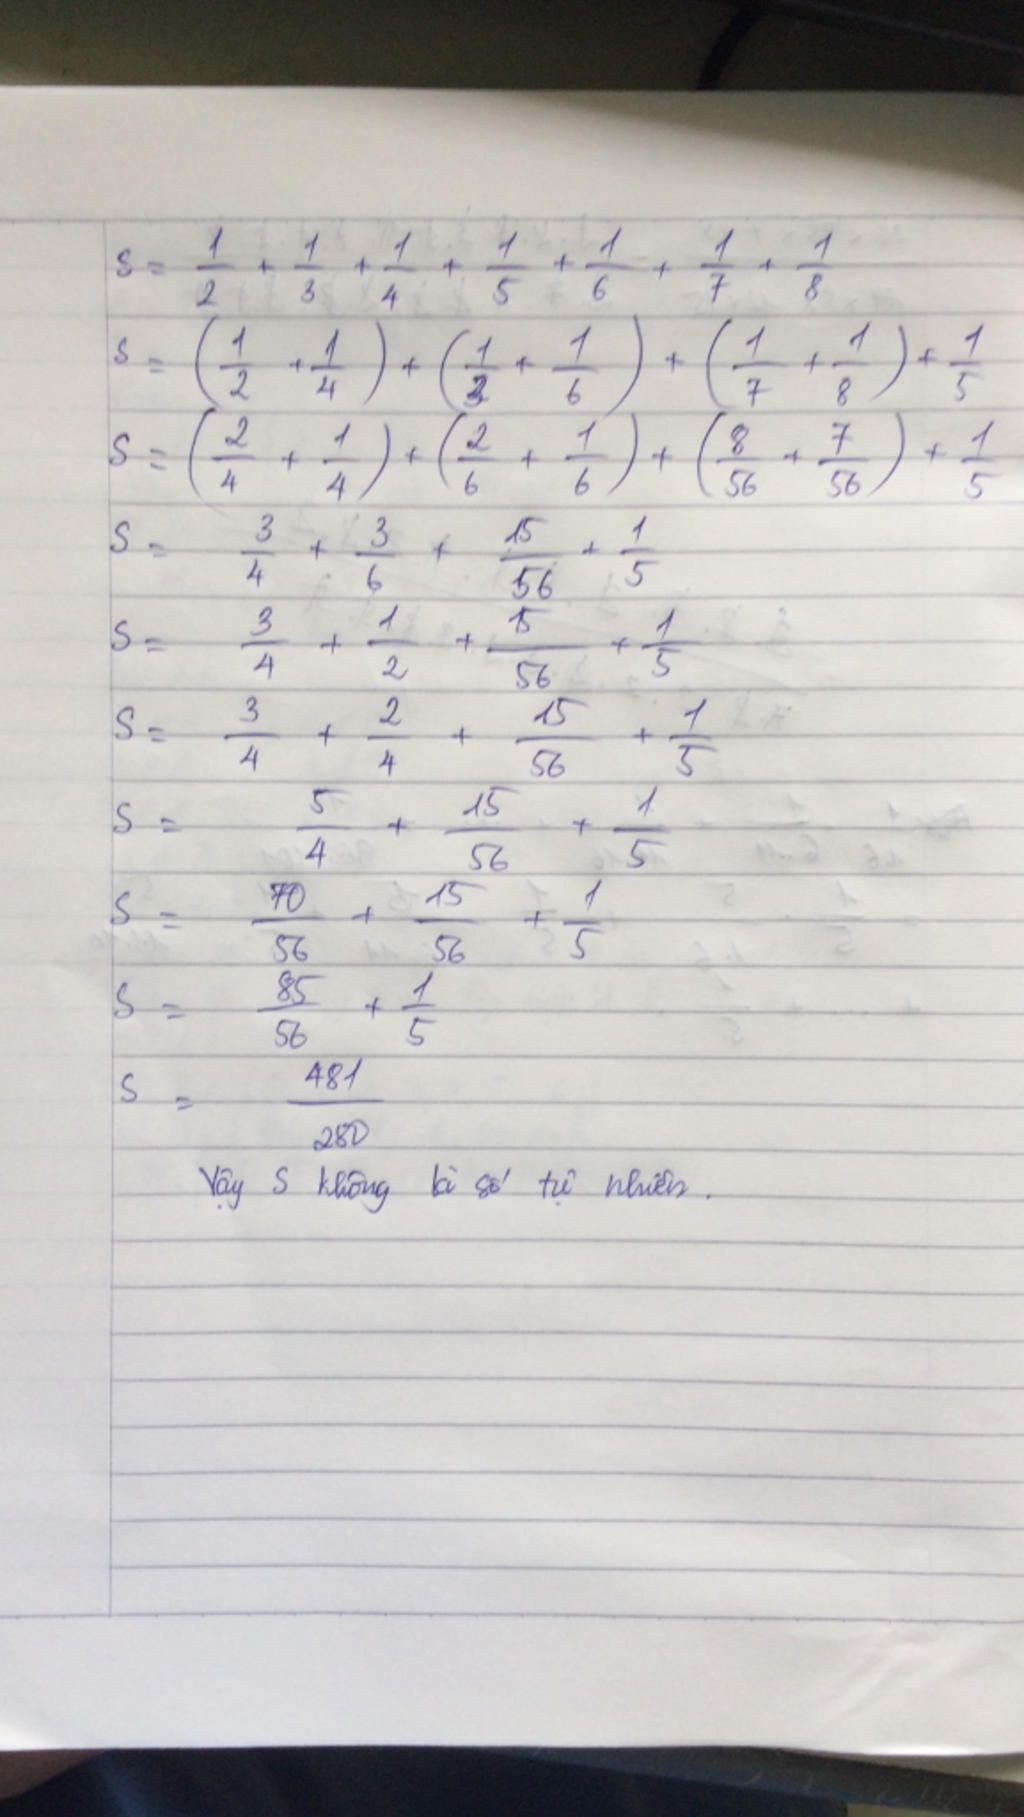 S = 1/2 + 1/3 + 1/4 + 1/5 + 1/6 + 1/7 + 1/8
S = (1/2 + 1/4) + (1/3 + 1/6) + (1/7 + 1/8) + 1/5
S = (2/4 + 1/4) + (2/6 + 1/6) + (8/56 + 7/56) + 1/5
S = 3/4 + 3/6 + 15/56 + 1/5
S = 3/4 + 1/2 + 15/56 + 1/5
S = 3/4 + 2/4 + 15/56 + 1/5
S = 5/4 + 15/56 + 1/5
S = 70/56 + 15/56 + 1/5
S = 85/56 + 1/5
S = 481/280
Vậy S không là số tự nhiên.